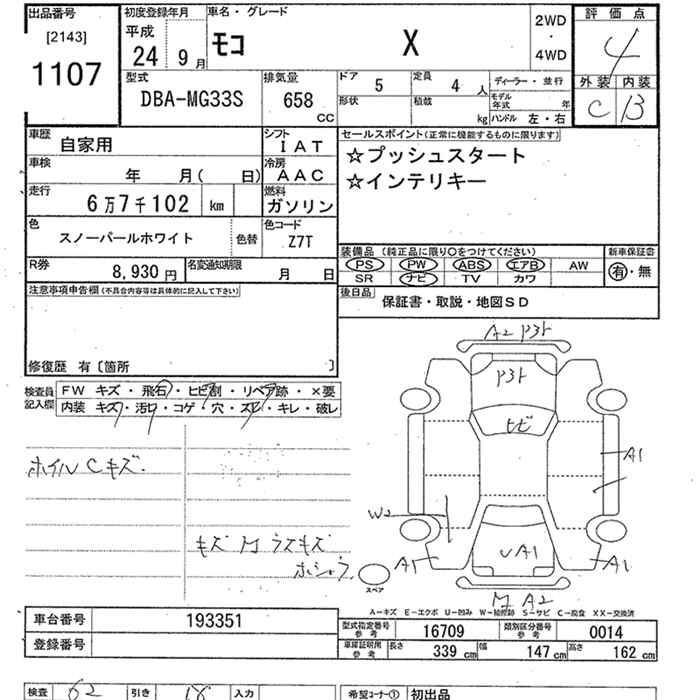 出品番号 初度登録年月 車名・グレード 評価点
[2143] 平成 2WD
1107 24 9月 モコ X ・ 4
4WD
型式 排気量 ドア 5 定員 4人 ディーラー・並行 外装 内装
DBA-MG33S 658 CC 形状 積載 kg モデル年式 年 C B
ハンドル 左・右
車歴 自家用 シフト IAT セールスポイント(正常に機能するものに限ります)
車検 年 月( 日) 冷房 AAC ☆プッシュスタート
走行 6万7千102 km 燃料 ガソリン ☆インテリキー
色 スノーパールホワイト 色替 色コード Z7T
R券 8,930円 名変通知期限 月 日 装備品(純正品に限り○をつけてください) 新車保証書
PS PW ABS エアB AW 有・無
SR ナビ TV カワ
注意事項申告欄(不具合内容等は具体的に記入して下さい) 後日品 保証書・取説・地図SD
修復歴 有〔箇所 〕
検査員記入欄 FW キズ・飛石・ヒビ割・リペア跡・×要
内装 キズ・汚レ・コゲ・穴・スレ・キレ・破レ
A2
ヒビ
A1
ホイルCキズ.
W2
キズ
UA1
A1 A1
スペア
A2
A-キズ E-エクボ U-凹み W-補修跡 S-サビ C-腐食 XX-交換済
車台番号 193351
登録番号
型式指定番号 参考 16709 類別区分番号 参考 0014
車庫証明用 参考 長さ 339cm 幅 147cm 高さ 162cm
検査 62 引き 18 入力 希望コーナー① 初出品